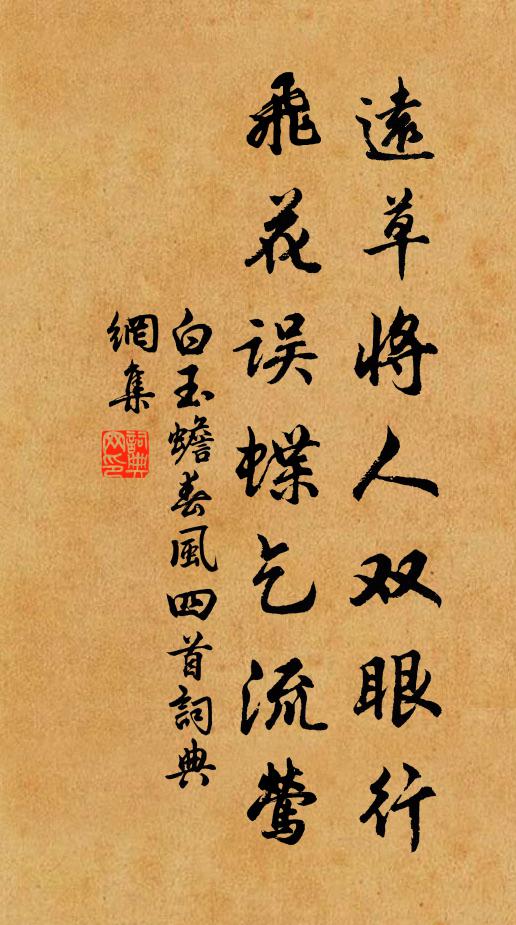 遠草將人双眼行
飛花误蝶乞流莺
白玉蟾春風四首詞典
網集
詞典网印